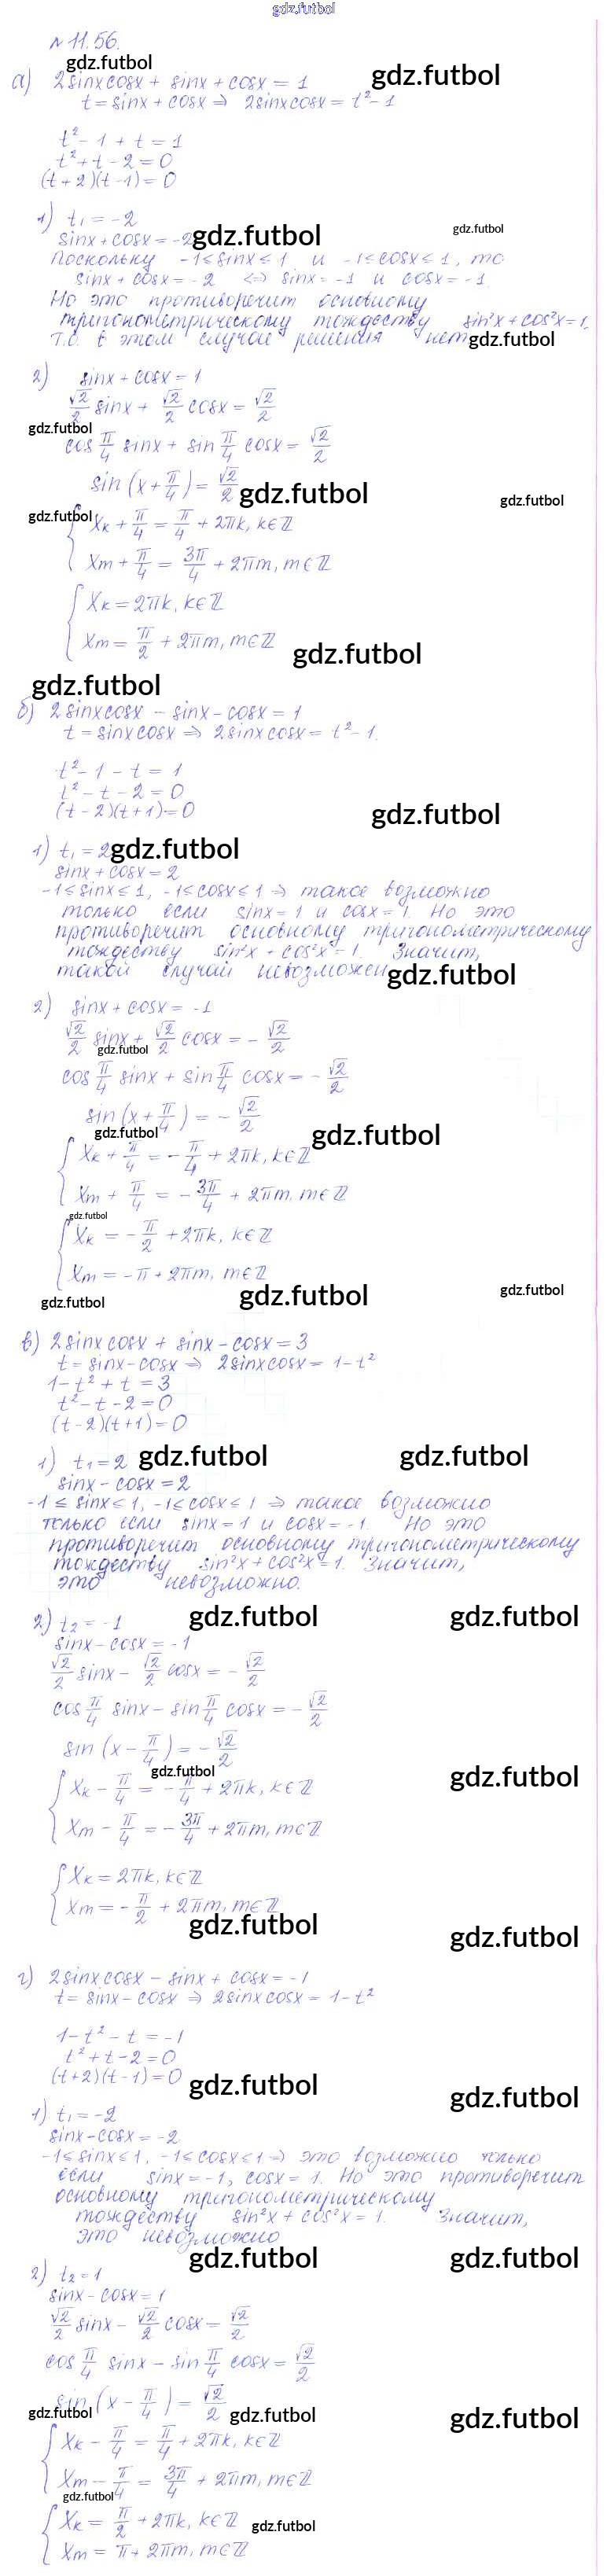 gdz.futbol
№11.56.
gdz.futbol
а) 2sinxcosx + sinx + cosx = 1
gdz.futbol
t = sinx + cosx ⇒ 2sinxcosx = t² - 1
t² - 1 + t = 1
t² + t - 2 = 0
(t + 2)(t - 1) = 0
1) t₁ = -2
gdz.futbol
sinx + cosx = -2
gdz.futbol
Поскольку -1 ≤ sinx ≤ 1 и -1 ≤ cosx ≤ 1, то
sinx + cosx = -2 ⇔ sinx = -1 и cosx = -1.
Но это противоречит основному
тригонометрическому тождеству sin²x + cos²x = 1.
Т.о. в этом случае решения нет
gdz.futbol
2) sinx + cosx = 1
√2/2 sinx + √2/2 cosx = √2/2
gdz.futbol
cos π/4 sinx + sin π/4 cosx = √2/2
sin (x + π/4) = √2/2
gdz.futbol
gdz.futbol
gdz.futbol
{ xₖ + π/4 = π/4 + 2πk, k∈ℤ
xₘ + π/4 = 3π/4 + 2πm, m∈ℤ
{ xₖ = 2πk, k∈ℤ
xₘ = π/2 + 2πm, m∈ℤ
gdz.futbol
gdz.futbol
б) 2sinxcosx - sinx - cosx = 1
t = sinxcosx ⇒ 2sinxcosx = t² - 1.
t² - 1 - t = 1
t² - t - 2 = 0
(t - 2)(t + 1) = 0
gdz.futbol
1) t₁ = 2
gdz.futbol
sinx + cosx = 2
-1 ≤ sinx ≤ 1, -1 ≤ cosx ≤ 1 ⇒ такое возможно
только если sinx = 1 и cosx = 1. Но это
противоречит основному тригонометрическому
тождеству sin²x + cos²x = 1. Значит,
такой случай невозможен
gdz.futbol
2) sinx + cosx = -1
√2/2 sinx + √2/2 cosx = - √2/2
gdz.futbol
cos π/4 sinx + sin π/4 cosx = - √2/2
sin (x + π/4) = - √2/2
gdz.futbol
gdz.futbol
{ xₖ + π/4 = - π/4 + 2πk, k∈ℤ
xₘ + π/4 = - 3π/4 + 2πm, m∈ℤ
gdz.futbol
{ xₖ = - π/2 + 2πk, k∈ℤ
xₘ = -π + 2πm, m∈ℤ
gdz.futbol
gdz.futbol
gdz.futbol
в) 2sinxcosx + sinx - cosx = 3
t = sinx - cosx ⇒ 2sinxcosx = 1 - t²
1 - t² + t = 3
t² - t - 2 = 0
(t - 2)(t + 1) = 0
1) t₁ = 2
gdz.futbol
gdz.futbol
sinx - cosx = 2
-1 ≤ sinx ≤ 1, -1 ≤ cosx ≤ 1 ⇒ такое возможно
только если sinx = 1 и cosx = -1. Но это
противоречит основному тригонометрическому
тождеству sin²x + cos²x = 1. Значит,
это невозможно.
2) t₂ = -1
gdz.futbol
gdz.futbol
sinx - cosx = -1
√2/2 sinx - √2/2 cosx = - √2/2
cos π/4 sinx - sin π/4 cosx = - √2/2
sin (x - π/4) = - √2/2
gdz.futbol
gdz.futbol
{ xₖ - π/4 = - π/4 + 2πk, k∈ℤ
xₘ - π/4 = - 3π/4 + 2πm, m∈ℤ
{ xₖ = 2πk, k∈ℤ
xₘ = - π/2 + 2πm, m∈ℤ
gdz.futbol
gdz.futbol
г) 2sinxcosx - sinx + cosx = -1
t = sinx - cosx ⇒ 2sinxcosx = 1 - t²
1 - t² - t = -1
t² + t - 2 = 0
(t + 2)(t - 1) = 0
gdz.futbol
gdz.futbol
1) t₁ = -2
sinx - cosx = -2
-1 ≤ sinx ≤ 1, -1 ≤ cosx ≤ 1 ⇒ это возможно только
если sinx = -1, cosx = 1. Но это противоречит
основному тригонометрическому
тождеству sin²x + cos²x = 1. Значит,
это невозможно
gdz.futbol
gdz.futbol
2) t₂ = 1
sinx - cosx = 1
√2/2 sinx - √2/2 cosx = √2/2
cos π/4 sinx - sin π/4 cosx = √2/2
sin (x - π/4) = √2/2
gdz.futbol
gdz.futbol
gdz.futbol
{ xₖ - π/4 = π/4 + 2πk, k∈ℤ
xₘ - π/4 = 3π/4 + 2πm, m∈ℤ
gdz.futbol
{ xₖ = π/2 + 2πk, k∈ℤ
gdz.futbol
xₘ = π + 2πm, m∈ℤ